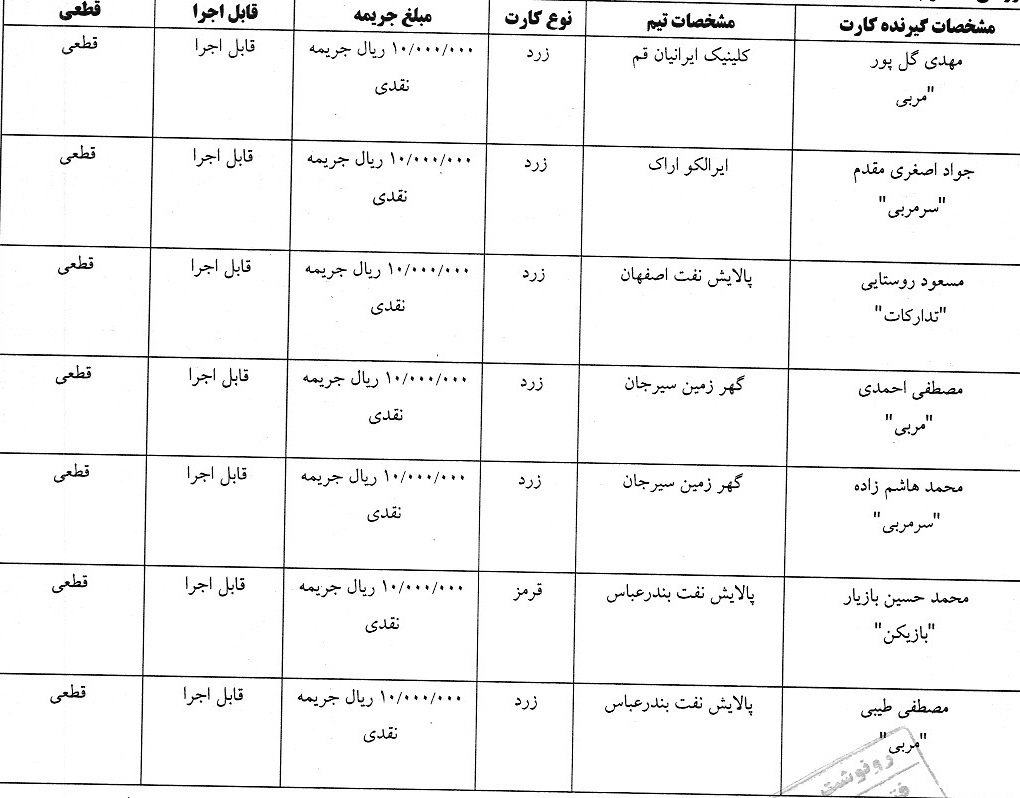 مشخصات گیرنده کارت مشخصات تیم نوع کارت مبلغ جریمه قابل اجرا قطعی
مهدی گل پور کلینیک ایرانیان قم زرد ۱۰/۰۰۰/۰۰۰ ریال جریمه قابل اجرا قطعی
"مربی نقدی
جواد اصغری مقدم ایرالکو اراک زرد ۱۰/۰۰۰/۰۰۰ ریال جریمه قابل اجرا قطعی
"سرمربی" نقدی
مسعود روستایی پالایش نفت اصفهان زرد ۱۰/۰۰۰/۰۰۰ ریال جریمه قابل اجرا قطعی
"تدارکات" نقدی
مصطفی احمدی گهر زمین سیرجان زرد ۱۰/۰۰۰/۰۰۰ ریال جریمه قابل اجرا قطعی
"مربی" نقدی
محمد هاشم زاده گهر زمین سیرجان زرد ۱۰/۰۰۰/۰۰۰ ریال جریمه قابل اجرا قطعی
"سرمربی" نقدی
محمد حسین بازیار پالایش نفت بندرعباس قرمز ۱۰/۰۰۰/۰۰۰ ریال جریمه قابل اجرا قطعی
"بازیکن" نقدی
مصطفی طیبی پالایش نفت بندرعباس زرد ۱۰/۰۰۰/۰۰۰ ریال جریمه قابل اجرا قطعی
"مربی" نقدی
رونوشت